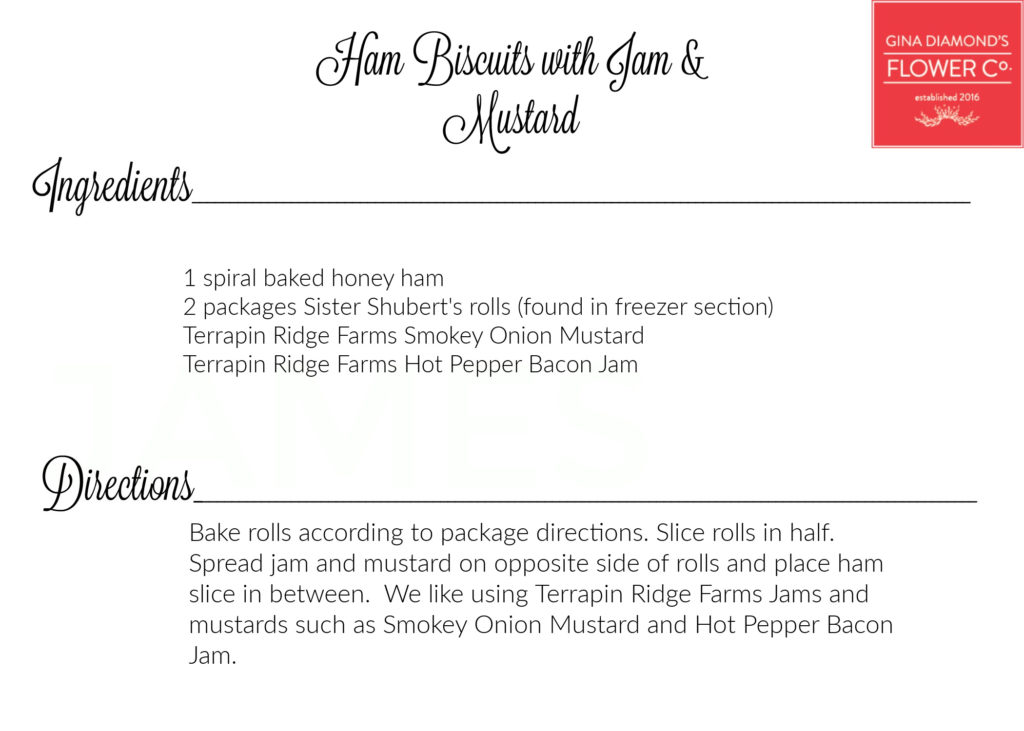 Ham Biscuits with Jam &
Mustard
GINA DIAMOND'S
FLOWER Co.
established 2016
Ingredients
1 spiral baked honey ham
2 packages Sister Shubert's rolls (found in freezer section)
Terrapin Ridge Farms Smokey Onion Mustard
Terrapin Ridge Farms Hot Pepper Bacon Jam
Directions
Bake rolls according to package directions. Slice rolls in half.
Spread jam and mustard on opposite side of rolls and place ham
slice in between.  We like using Terrapin Ridge Farms Jams and
mustards such as Smokey Onion Mustard and Hot Pepper Bacon
Jam.